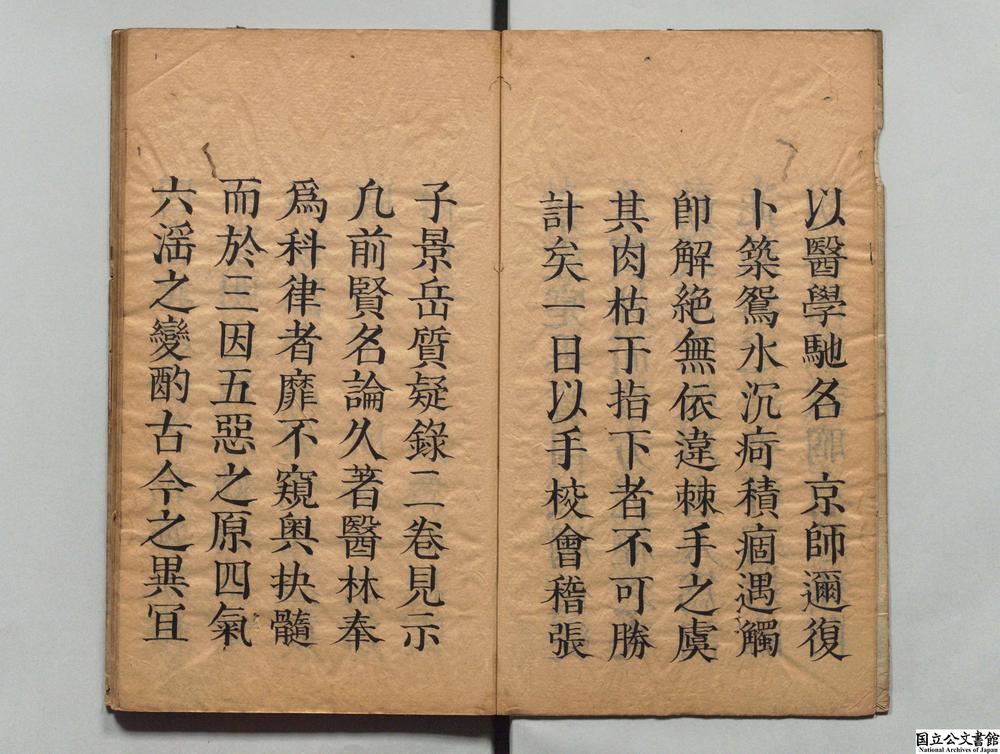 以醫學馳名　京師邇復
卜築鴛水沉疴積痼遇觸
卽解絶無依違棘手之虞
其肉枯于指下者不可勝
計矣一日以手校會稽張
子景岳質疑錄二卷見示
凢前賢名論久著醫林奉
爲科律者靡不窺奥抉髓
而於三因五惡之原四氣
六滛之變酌古今之異冝
国立公文書館
National Archives of Japan